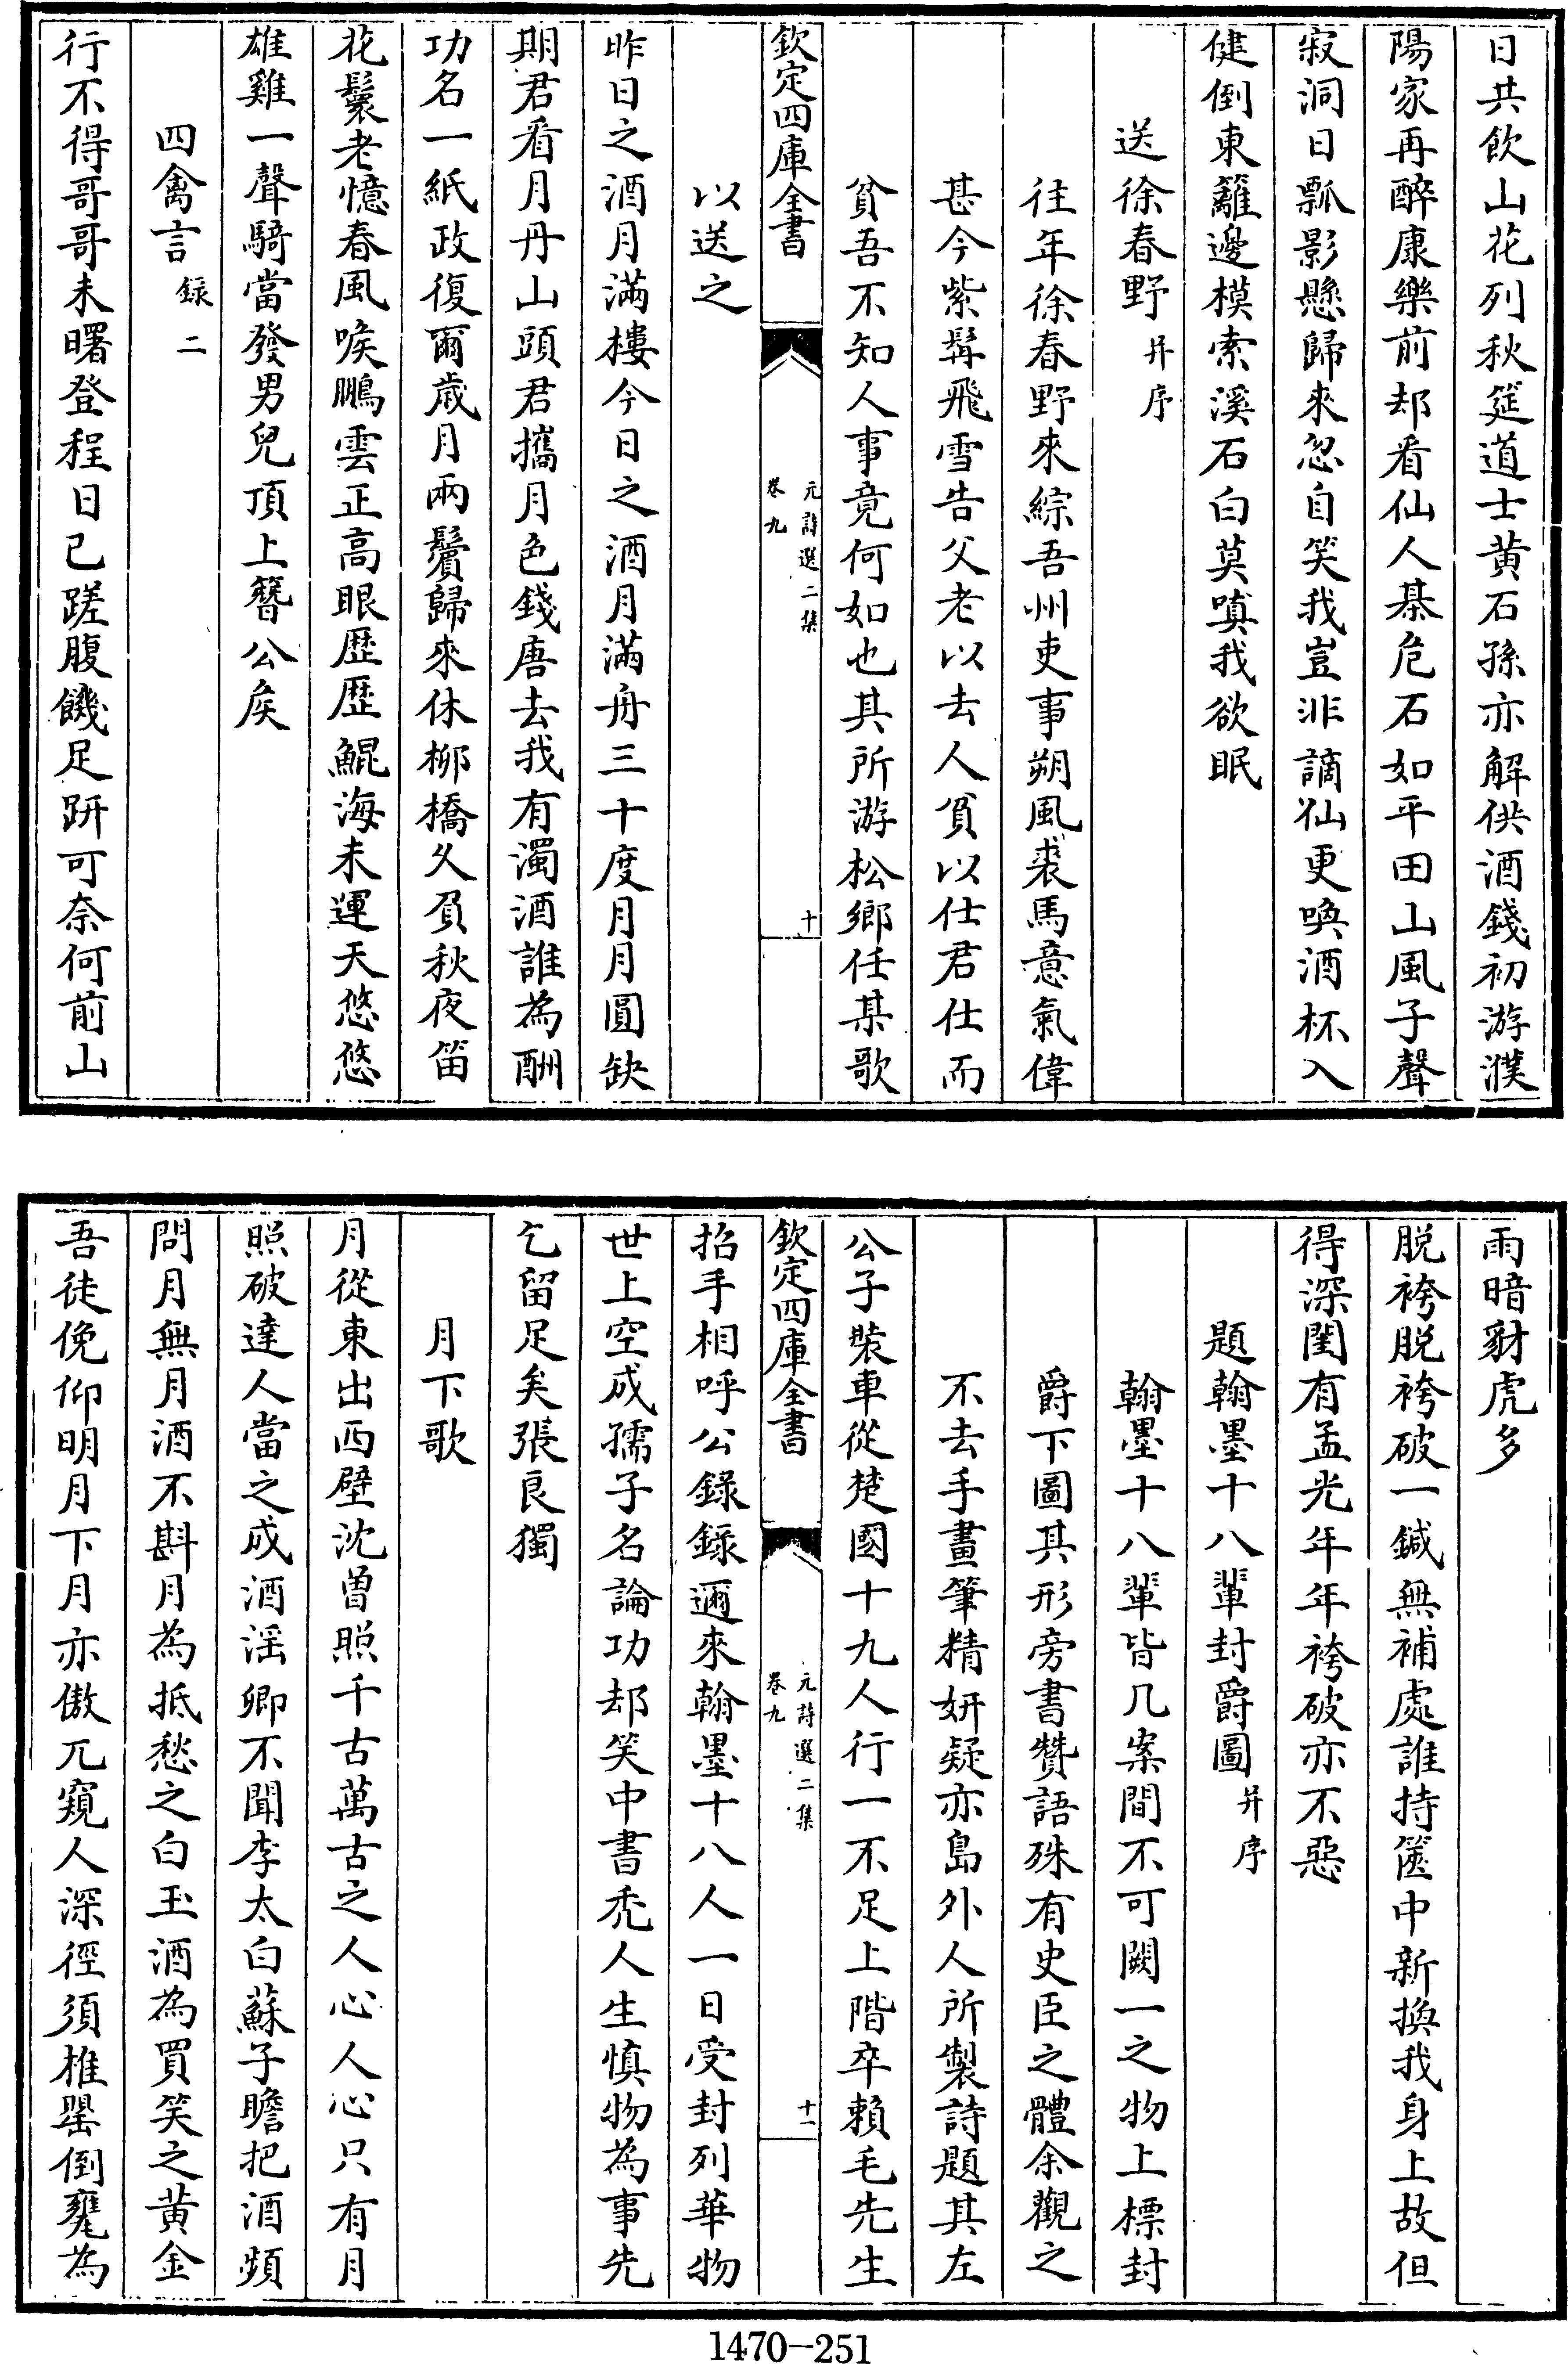 日共飲山花列秋筵道士黄石孫亦解供酒錢初游濮
陽家再醉康樂前却看仙人棊危石如平田山風子聲
寂洞日瓢影懸歸來忽自笑我豈非謫仙更喚酒杯入
健倒東籬邊模索溪石白莫嗔我欲眠
送徐春野并序
往年徐春野來綜吾州吏事朔風裘馬意氣偉
甚今紫髯飛雪告父老以去人貧以仕君仕而
貧吾不知人事竟何如也其所游松鄉任某歌
欽定四庫全書
元詩選二集
卷九
十
以送之
昨日之酒月滿樓今日之酒月滿舟三十度月月圓缺
期君看月丹山頭君攜月色錢唐去我有濁酒誰為酬
功名一紙政復爾歲月兩鬢歸來休柳橋久負秋夜笛
花鬟老憶春風喉鵬雲正高眼歷歷鯤海未運天悠悠
雄雞一聲騎當發男兒頂上簪公矦
四禽言録二
行不得哥哥未曙登程日已蹉腹饑足趼可奈何前山
雨暗豺虎多
脱袴脱袴破一鍼無補處誰持篋中新換我身上故但
得深閨有孟光年年袴破亦不惡
題翰墨十八輩封爵圖并序
翰墨十八輩皆几案間不可闕一之物上標封
爵下圖其形旁書贊語殊有史臣之體余觀之
不去手畫筆精妍疑亦島外人所製詩題其左
公子裝車從楚國十九人行一不足上階卒賴毛先生
欽定四庫全書
元詩選二集
卷九
十一
招手相呼公錄錄邇來翰墨十八人一日受封列華物
世上空成孺子名論功却笑中書禿人生慎物為事先
乞留足矣張良獨
月下歌
月從東出西壁沈曾照千古萬古之人心人心只有月
照破達人當之成酒淫卿不聞李太白蘇子瞻把酒頻
問月無月酒不斟月為抵愁之白玉酒為買笑之黄金
吾徒俛仰明月下月亦傲兀窺人深徑須椎罌倒甕為
1470-251